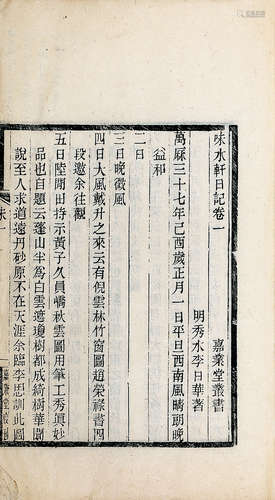 味水軒日記卷一
嘉業堂叢書
明秀水李日華著
萬厤三十七年己酉歲正月一日平旦西南風晴朗晚
益和
二日
三日晚微風
四日大風戴升之來云有倪雲林竹窗圖趙榮祿書四
段邀余往觀
五日陸閒田持示黃子久員嶠秋雲圖用筆工秀眞妙
品也自題云蓬山半爲白雲遮瓊樹都成綺樹華聞
說至人求道遠丹砂原不在天涯余臨李思訓此圖
味一
嘉業堂